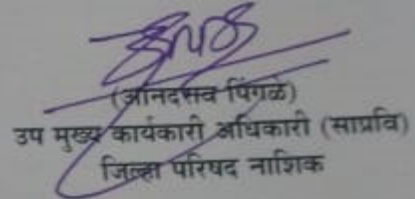 (आनंदराव पिंगळे)
उप मुख्य कार्यकारी अधिकारी (साप्रवि)
जिल्हा परिषद नाशिक